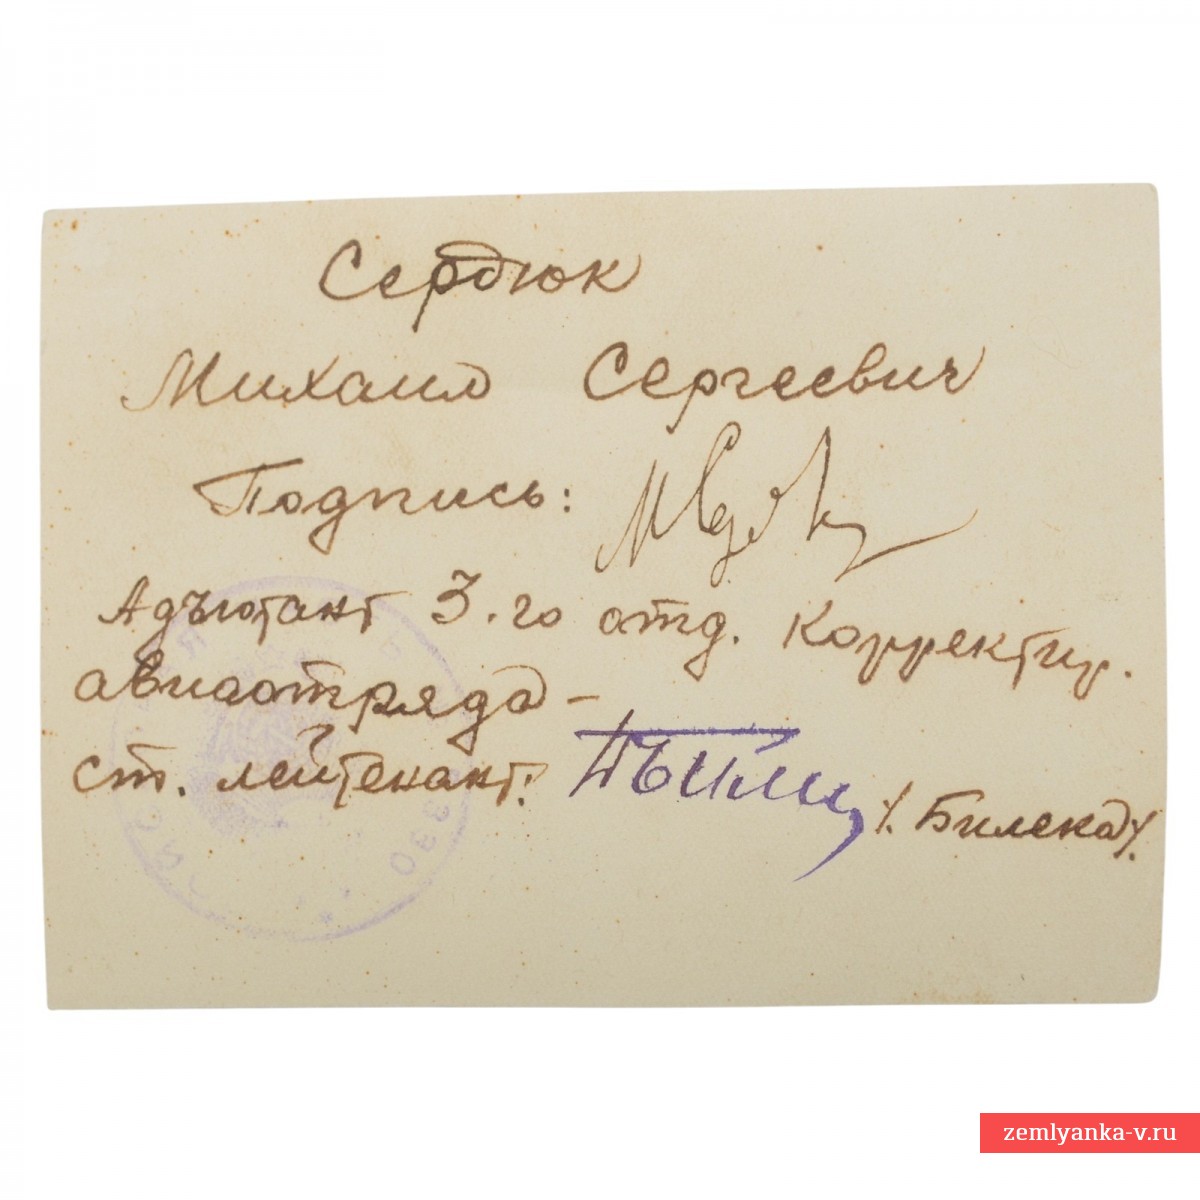 Сердюк
Михаил Сергеевич
Подпись:
Адъютант 3-го отд. корректир.
авиаотряда –
ст. лейтенант: /. Билека /.
zemlyanka-v.ru